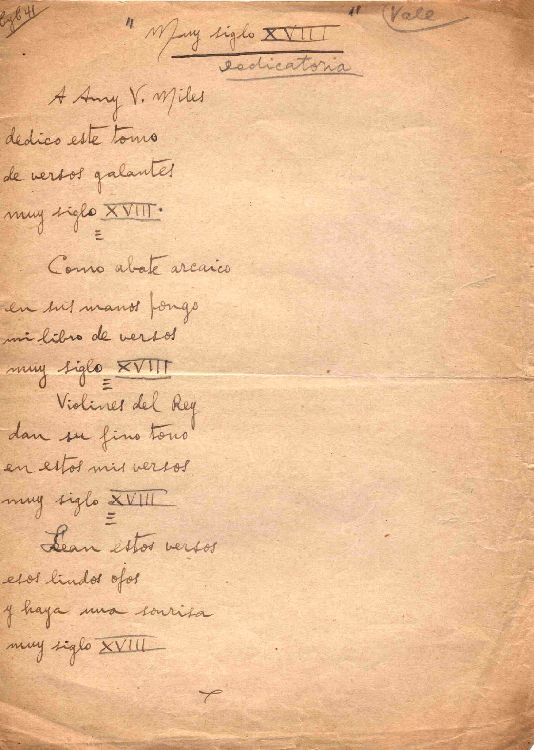 "Muy siglo XVIII" Vale
dedicatoria
A Amy V. Miles
dedico este tomo
de versos galantes
muy siglo XVIII.
Como abate arcaico
en sus manos pongo
mi libro de versos
muy siglo XVIII
Violines del Rey
dan su fino tono
en estos mis versos
muy siglo XVIII
Lean estos versos
esos lindos ojos
y haya una sonrisa
muy siglo XVIII